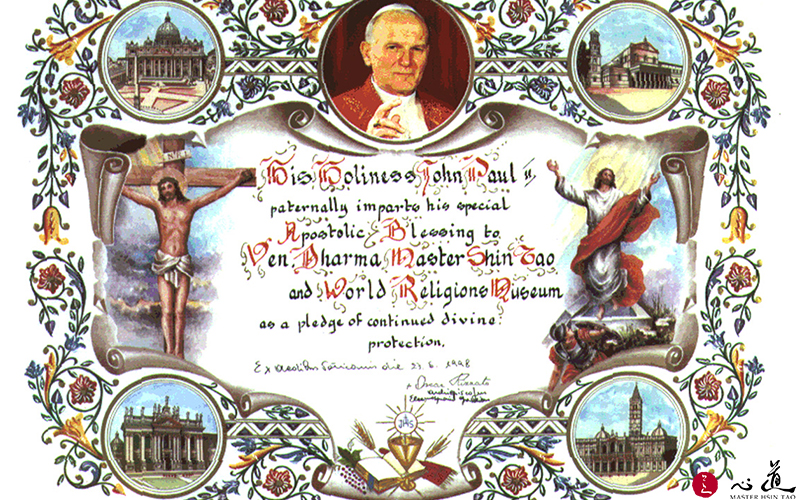 INRI
His Holiness John Paul II
paternally imparts his special
Apostolic Blessing to
Ven Dharma Master Shin Tao
and World Religions Museum
as a pledge of continued divine
protection.
Ex Aedibus Vaticanis die 23. 6. 1998
+ Oscar Rizzato
IHS
心道
MASTER HSIN TAO